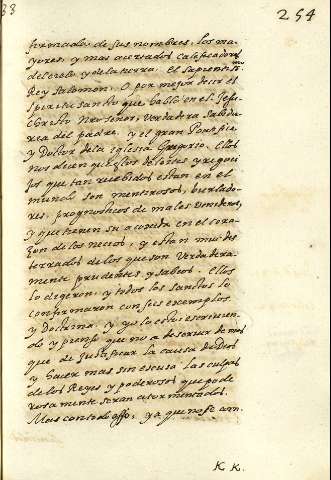 38 254
formado, de sus nombres, los ma
yores, y mas acertados calificadores
del cielo y de la tierra. El sapientismo
Rey Salomon, o por mejor decir el
Spiritu santo que hablo en el. Jesu
Christo Nro señor, verdadera sabidu
ria del padre, y el gran Pontifice
y Doctor de la iglesia Gregorio. Ellos
nos dicen que los deleites y regoci
jos que tan recibidos estan en el
mundo son mentirosos, burlado
res, prognosticos de males venideros,
y que tienen su acogida en el cora
zon de los necios, y estan muy des
terrados de los que son verdadera
mente prudentes y sabios. Ellos
lo dijeron, y todos los santos lo
confirmaron con sus exemplos
y Doctrina. y yo lo estoy escrivien
do y pienso que no a de servir de mas
que de justificar la causa de Dios
y hacer mas sin escusa las culpas
de los Reyes y poderosos que pode
rosamente seran atormentados.
Mas con todo esso, ya que no se am
K K.